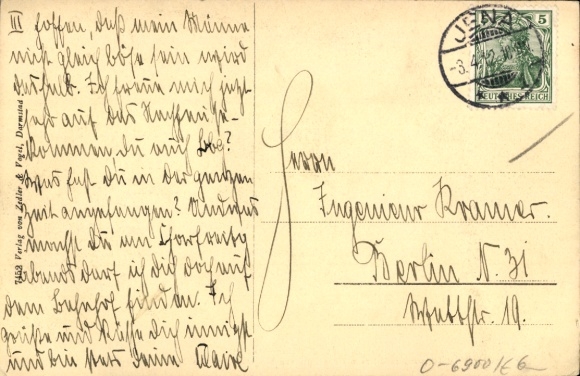 III hoffen, daß mein Männe
nicht gleich böse sein wird
deshalb. Ich freue mich jetzt
sehr auf das Nachhause-
kommen du auch Lbe?
Was hast Du in der ganzen
Zeit angefangen?
machst Du am Charfreitag
abends darf ich Dich doch auf
dem Bahnhof finden. Ich
grüße und küsse Dich innigst
und bin stets Deine Claire
7459 Verlag von Zedler & Vogel, Darmstadt
JENA
-3.4.12
5
DEUTSCHES REICH
Herrn
Ingenieur Kramer.
Berlin N. 31
Wattstr. 19.
O-6900/E6